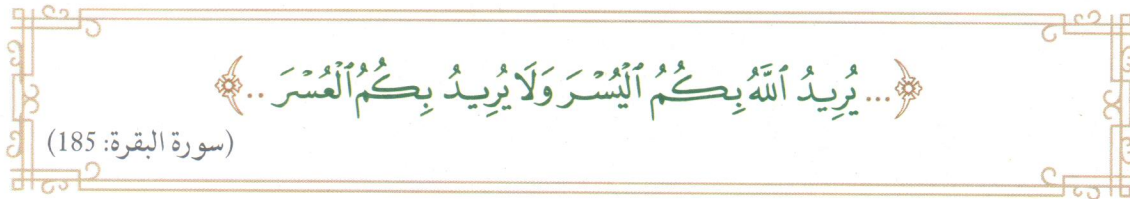 ﴿... يُرِيدُ ٱللَّهُ بِكُمُ ٱلْيُسْرَ وَلَا يُرِيدُ بِكُمُ ٱلْعُسْرَ ..﴾
(سورة البقرة: 185)